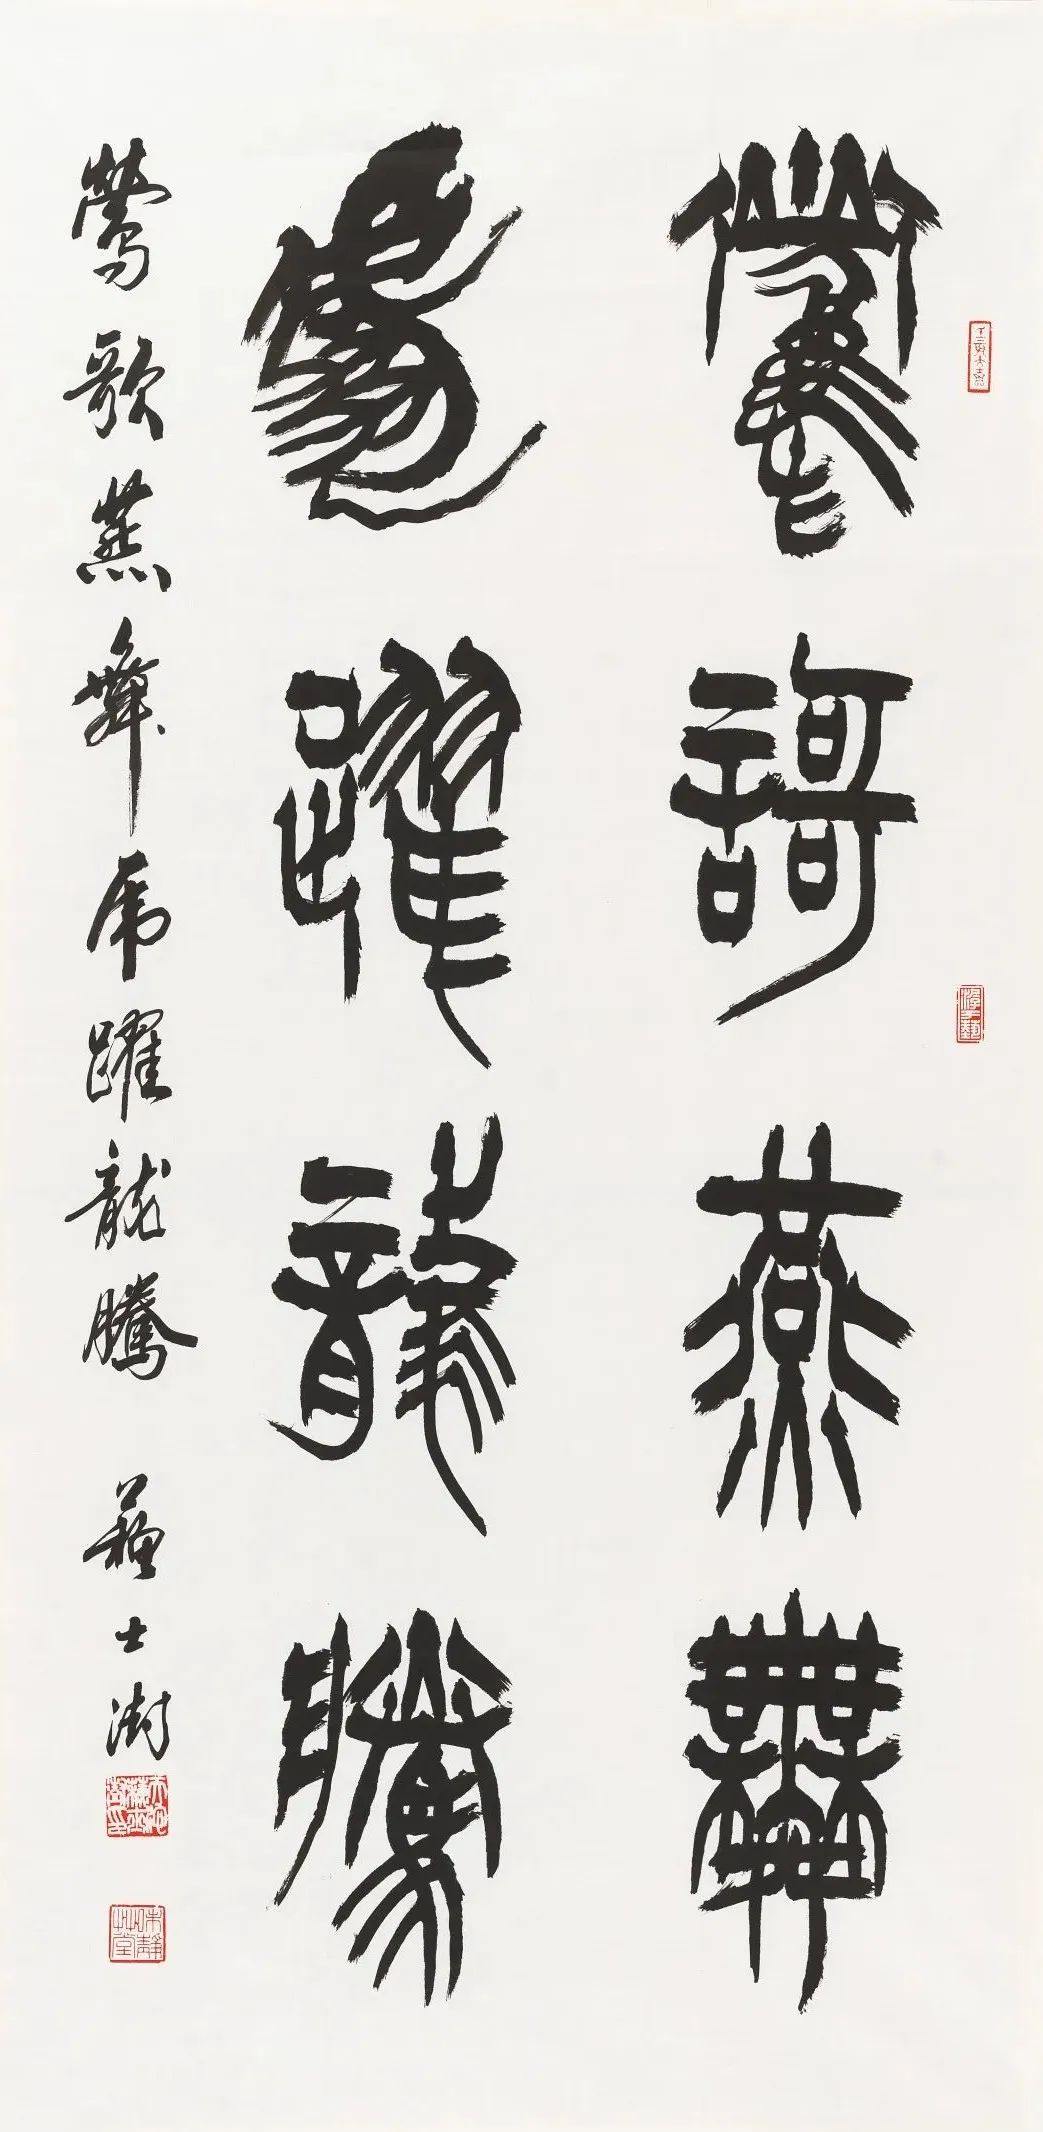 鶯謌燕舞
虎躍龍騰
鶯歌燕舞虎躍龍騰 蘇士澍